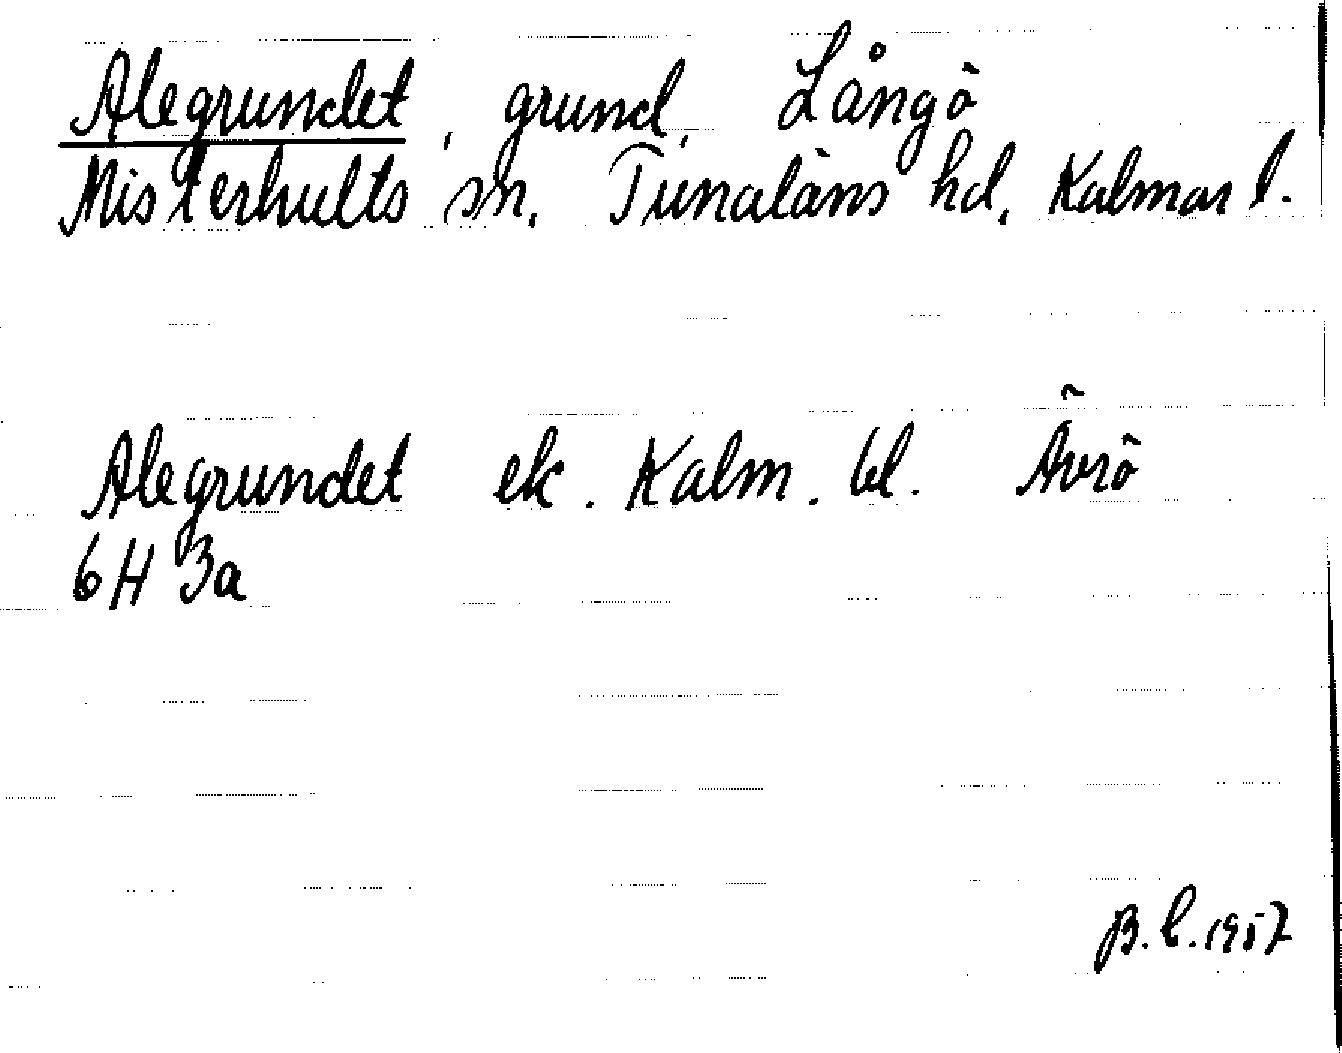 Alegrundet, grund, Långö
Misterhults sn. Tunaläns hd, Kalmar l.
Alegrundet ek. Kalm. bl. Ävrö
6H 3a
B.C. 1957